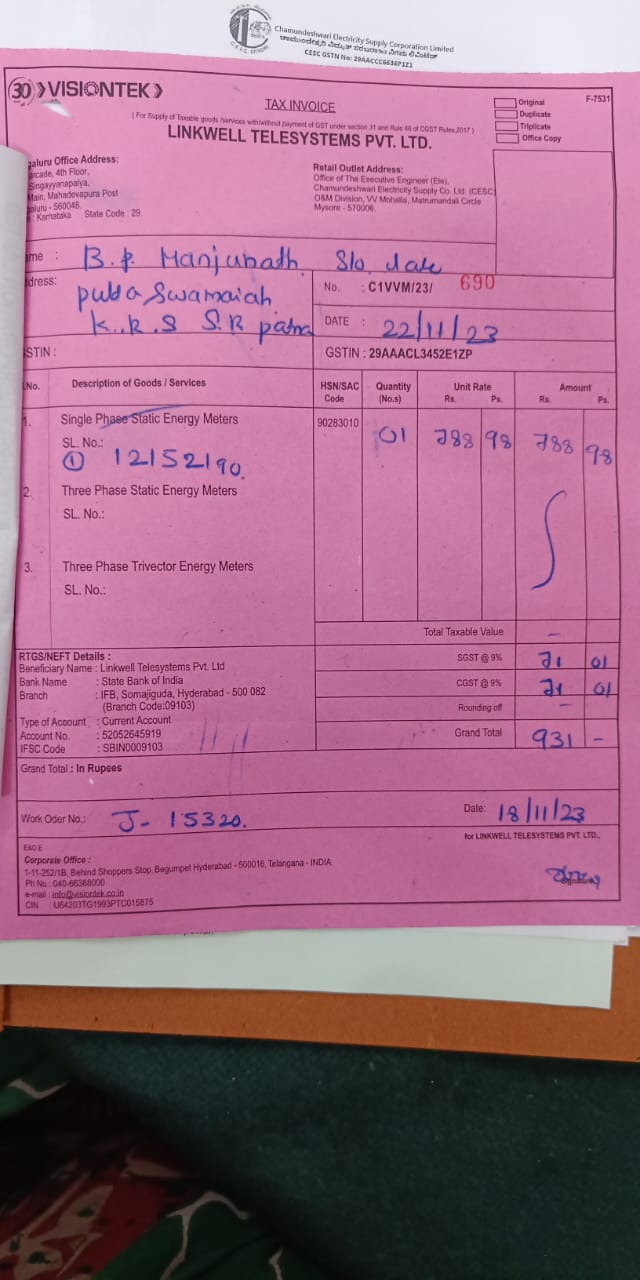 Chamundeshwari Electricity Supply Corporation Limited
CESC GSTN No: 29AACCC6636P1Z1
30 VISIONTEK
TAX INVOICE
F-7531
Original
Duplicate
Triplicate
Office Copy
( For Supply of Taxable goods /services with/without payment of GST under section 31 and Rule 46 of CGST Rules.2017 )
LINKWELL TELESYSTEMS PVT. LTD.
galuru Office Address:
arcade, 4th Floor,
Singayyanapalya,
Main, Mahadevapura Post
aluru - 560048.
Karnataka State Code : 29.
Retail Outlet Address:
Office of The Executive Engineer (Ele),
Chamundeshwari Electricity Supply Co. Ltd. (CESC)
O&M Division, VV Mohalla, Matrumandali Circle
Mysore - 570006.
me : B.P. Manjunath S/o. date
dress: putta Swamaiah
K.R.S S.R patna
No. : C1VVM/23/ 690
DATE : 22/11/23
STIN :
GSTIN : 29AAACL3452E1ZP
.No. Description of Goods / Services HSN/SAC Code Quantity (No.s) Unit Rate Rs. Ps. Amount Rs. Ps.
1. Single Phase Static Energy Meters 90283010 01 788 98 788 98
SL. No.:
① 12152190.
2. Three Phase Static Energy Meters
SL. No.:
3. Three Phase Trivector Energy Meters
SL. No.:
Total Taxable Value –
SGST @ 9% 71 01
CGST @ 9% 71 01
Rounding off –
Grand Total 931 –
RTGS/NEFT Details :
Beneficiary Name : Linkwell Telesystems Pvt. Ltd
Bank Name : State Bank of India
Branch : IFB, Somajiguda, Hyderabad - 500 082
(Branch Code:09103)
Type of Account : Current Account
Account No. : 52052645919
IFSC Code : SBIN0009103
Grand Total : In Rupees
Work Oder No.: J- 15320.
Date: 18/11/23
for LINKWELL TELESYSTEMS PVT. LTD.,
E&O E
Corporate Office :
1-11-252/1B, Behind Shoppers Stop, Begumpet Hyderabad - 500016, Telangana - INDIA
Ph No : 040-66388000
e-mail : info@visiontek.co.in
CIN : U64203TG1993PTC015875